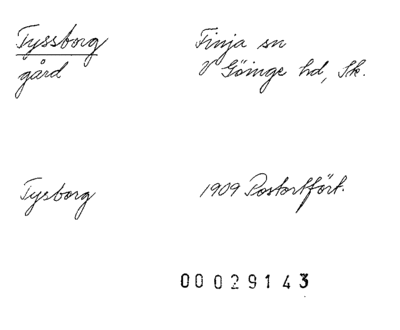 Tyssborg Finja sn
gård V Göinge hd, Sk.
Tysborg 1909 Postortfört.
00029143